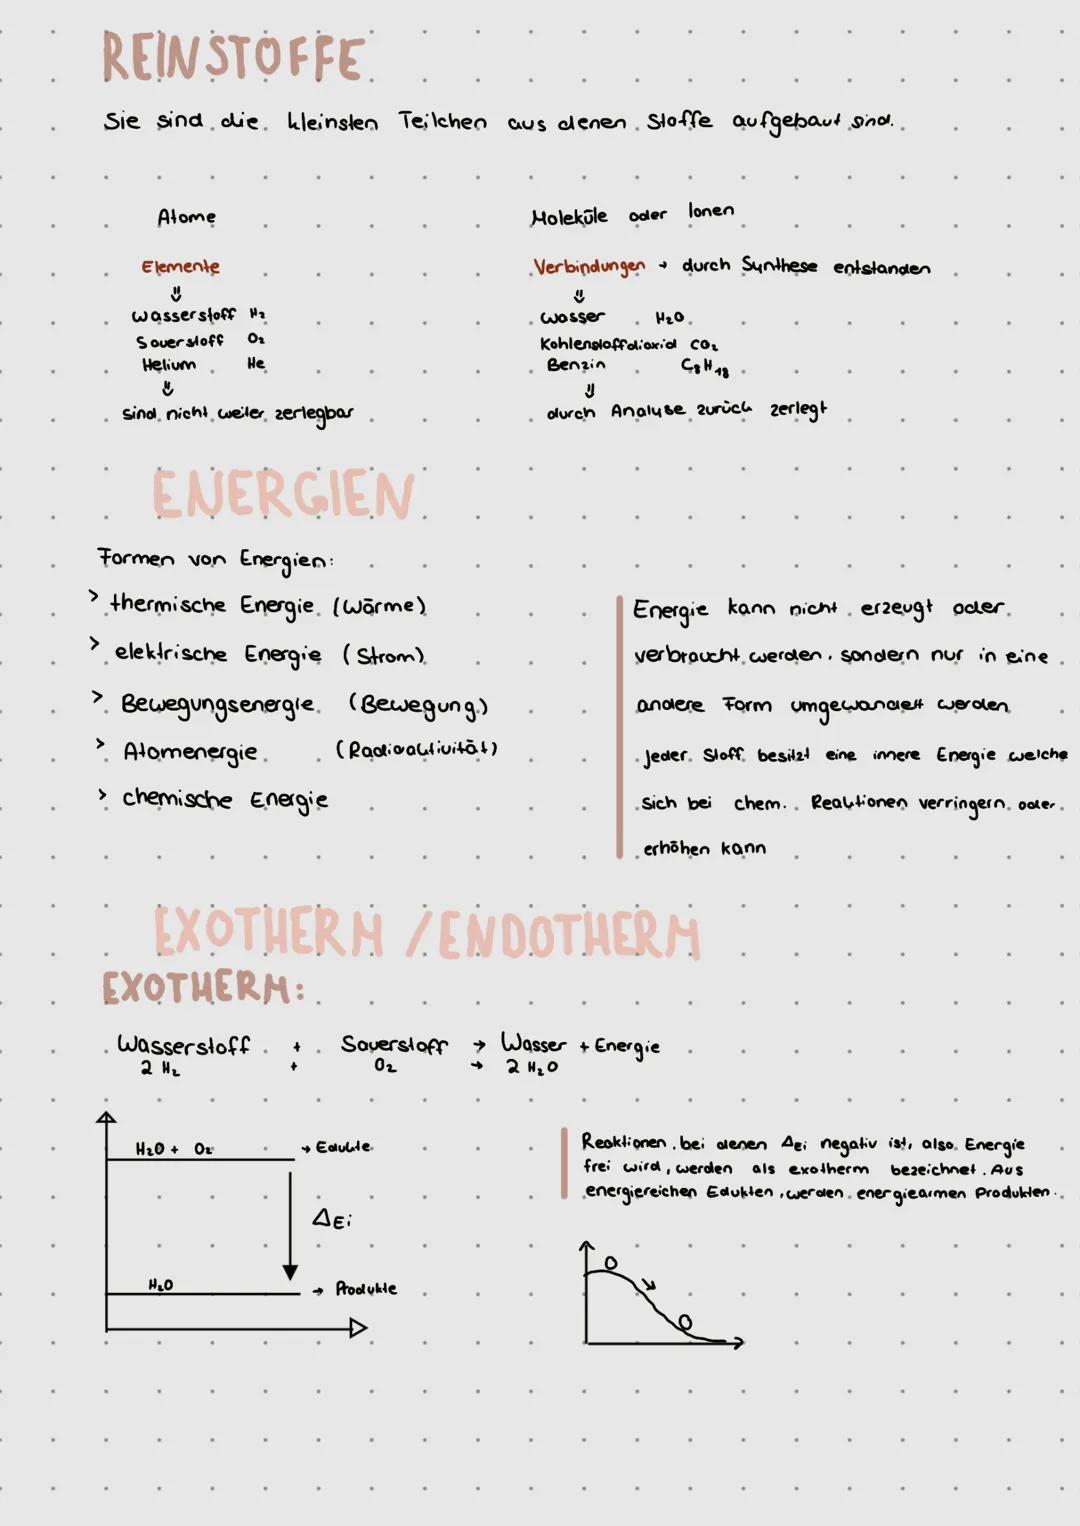 REINSTOFFE
Sie sind die kleinsten Teilchen aus denen Stoffe aufgebaut sind.
Atome
Moleküle oder Ionen
Elemente
Verbindungen → durch Synthese entstanden
⇓
⇓
Wasserstoff H₂
Wasser H₂O
Sauerstoff O₂
Kohlenstoffdioxid CO₂
Helium He
Benzin C₈H₁₈
⇓
⇓
sind nicht weiter zerlegbar
durch Analyse zurück zerlegt
ENERGIEN
Formen von Energien:
> thermische Energie (Wärme)
> elektrische Energie (Strom)
> Bewegungsenergie (Bewegung)
> Atomenergie (Radioaktivität)
> chemische Energie
Energie kann nicht erzeugt oder
verbraucht werden, sondern nur in eine
andere Form umgewandelt werden
jeder Stoff besitzt eine innere Energie welche
sich bei chem. Reaktionen verringern oder
erhöhen kann
EXOTHERM / ENDOTHERM
EXOTHERM:
Wasserstoff + Sauerstoff → Wasser + Energie
2 H₂ + O₂ → 2 H₂O
H₂O + O₂ → Edukte
ΔEi
H₂O → Produkte
Reaktionen, bei denen ΔEi negativ ist, also Energie
frei wird, werden als exotherm bezeichnet. Aus
energiereichen Edukten, werden energiearmen Produkten.